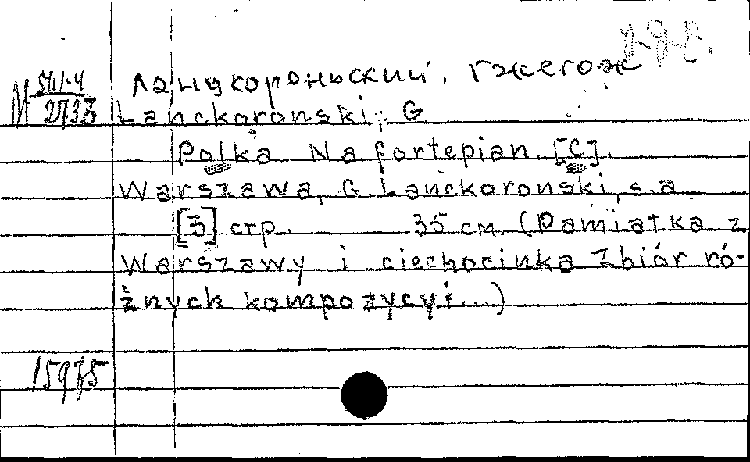 Ланцкороньский, Гжегож
M 2733
Lanckoronski, G
Polka Na fortepian [C].
Warszawa, G Lanckoronski, s.a
[3] стр. 35 см (Pamiatka z
Warszawy i ciechocinka Zbiór ró-
żnych kompozycyi...)
15975